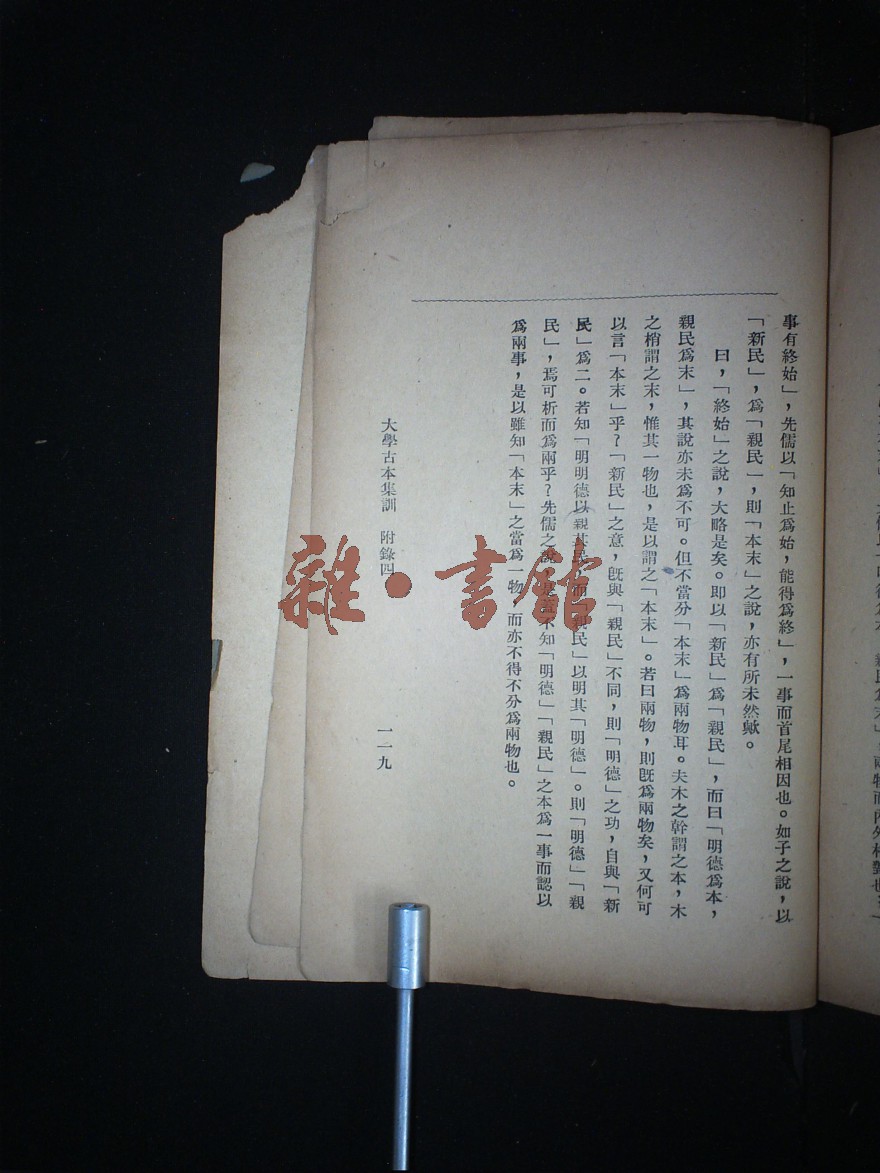 事有終始」，先儒以「知止為始，能得為終」，一事而首尾相因也。如子之說，以
「新民」，為「親民」，則「本末」之說，亦有所未然歟。
曰，「終始」之說，大略是矣。即以「新民」為「親民」，而曰「明德為本，
親民為末」，其說亦未為不可。但不當分「本末」為兩物耳。夫木之幹謂之本，木
之梢謂之末，惟其一物也，是以謂之「本末」。若曰兩物，則既為兩物矣，又何可
以言「本末」乎？「新民」之意，既與「親民」不同，則「明德」之功，自與「新
民」為二。若知「明明德以親其民」而「親民」以明其「明德」。則「明德」「親
民」，焉可析而為兩乎？先儒之說，是蓋不知「明德」「親民」之本為一事而認以
為兩事，是以雖知「本末」之當為一物，而亦不得不分為兩物也。
大學古本集訓　附錄四　一一九
雜·書館